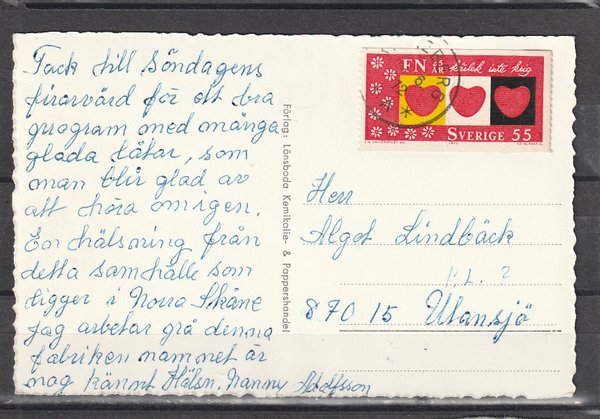 Tack till Söndagens
firarvärd för ett bra
program med många
glada låtar, som
man blir glad av
att höra omigen.
En hälsning från
detta samhälle som
ligger i Norra Skåne
Jag arbetar på denna
fabriken namnet är
nog kännt Hälsn. Nanny Adolfsson
Förlag: Lönsboda Kemikalie- & Pappershandel
EN ÅR kärlek inte krig
SVERIGE 55
Herr
Algot Lindbäck
PL. 2
870 15 Utansjö